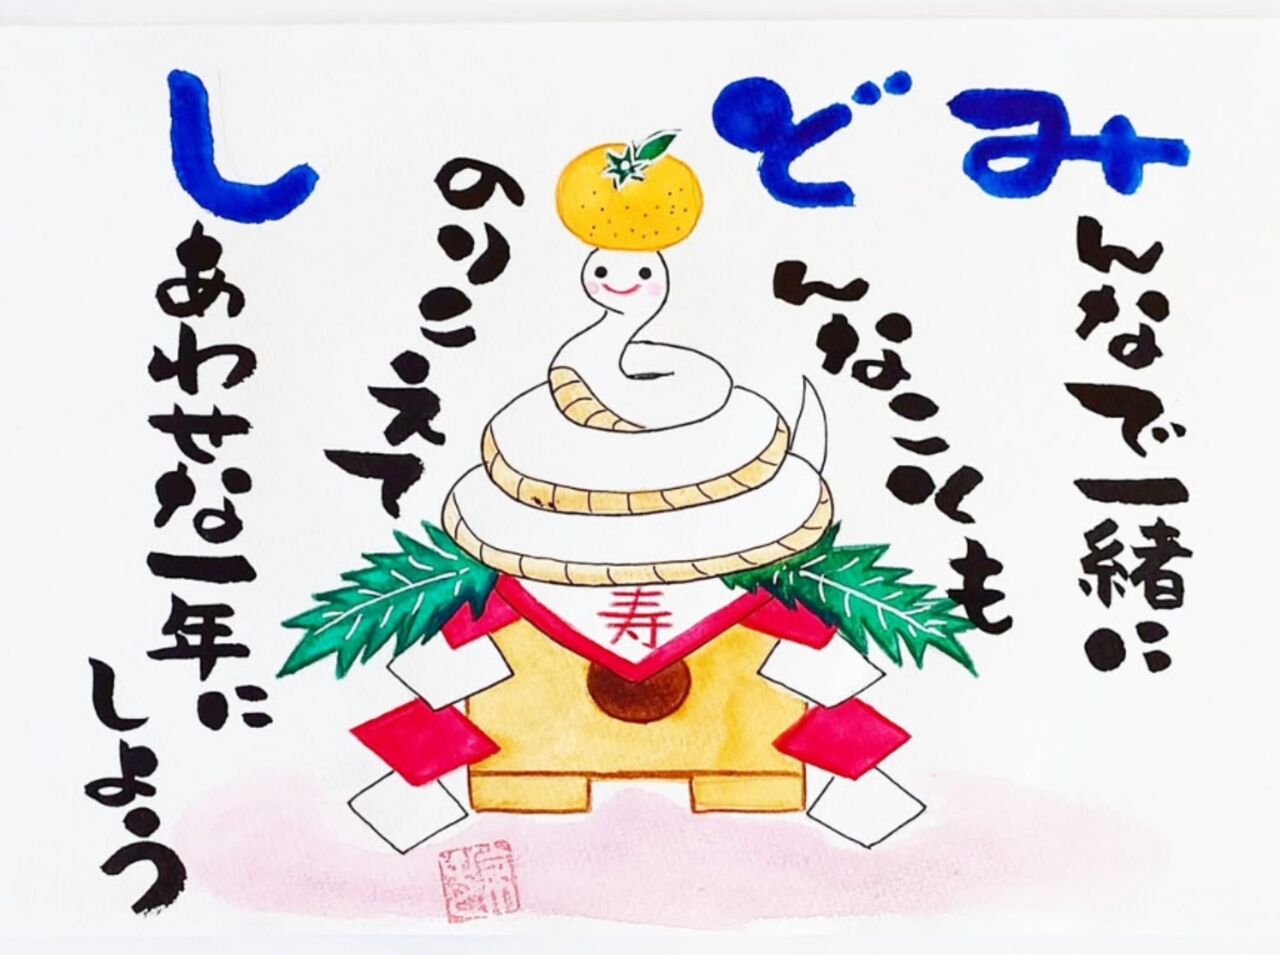 みんなで一緒に
どんなことも
のりこえて
しあわせな一年に
しよう
寿